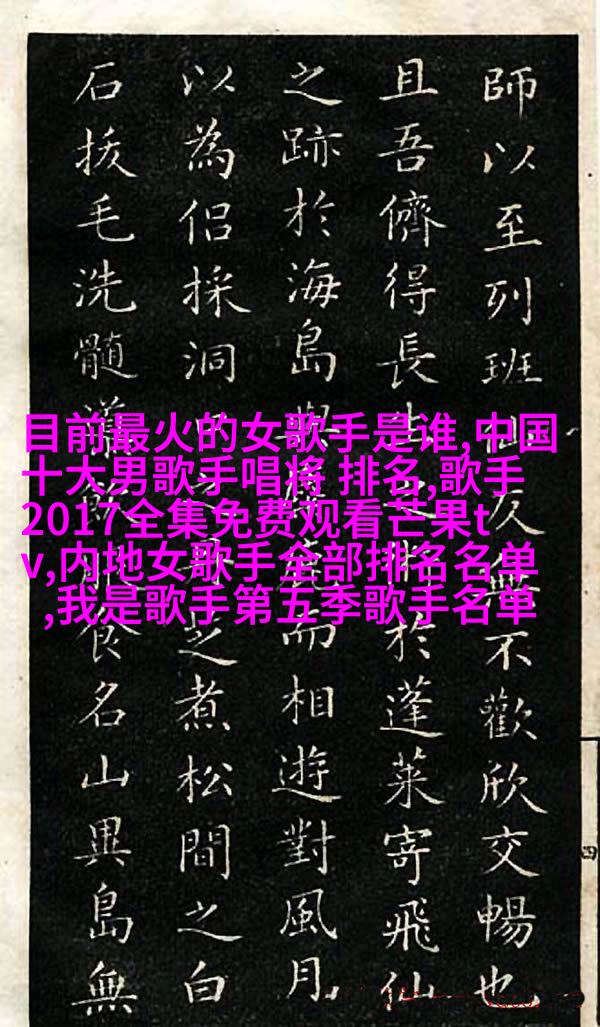 師以至列班仙友無不歡欣交暢也
且吾儕得長生於蓬萊寄飛仙
之跡於海島與而相遊對風月
以為侶採洞之煮松間之白
石拔毛洗髓食名山異島無
目前最火的女歌手是谁,中国
十大男歌手唱将 排名,歌手
2017全集免费观看芒果t
v,内地女歌手全部排名名单
,我是歌手第五季歌手名单